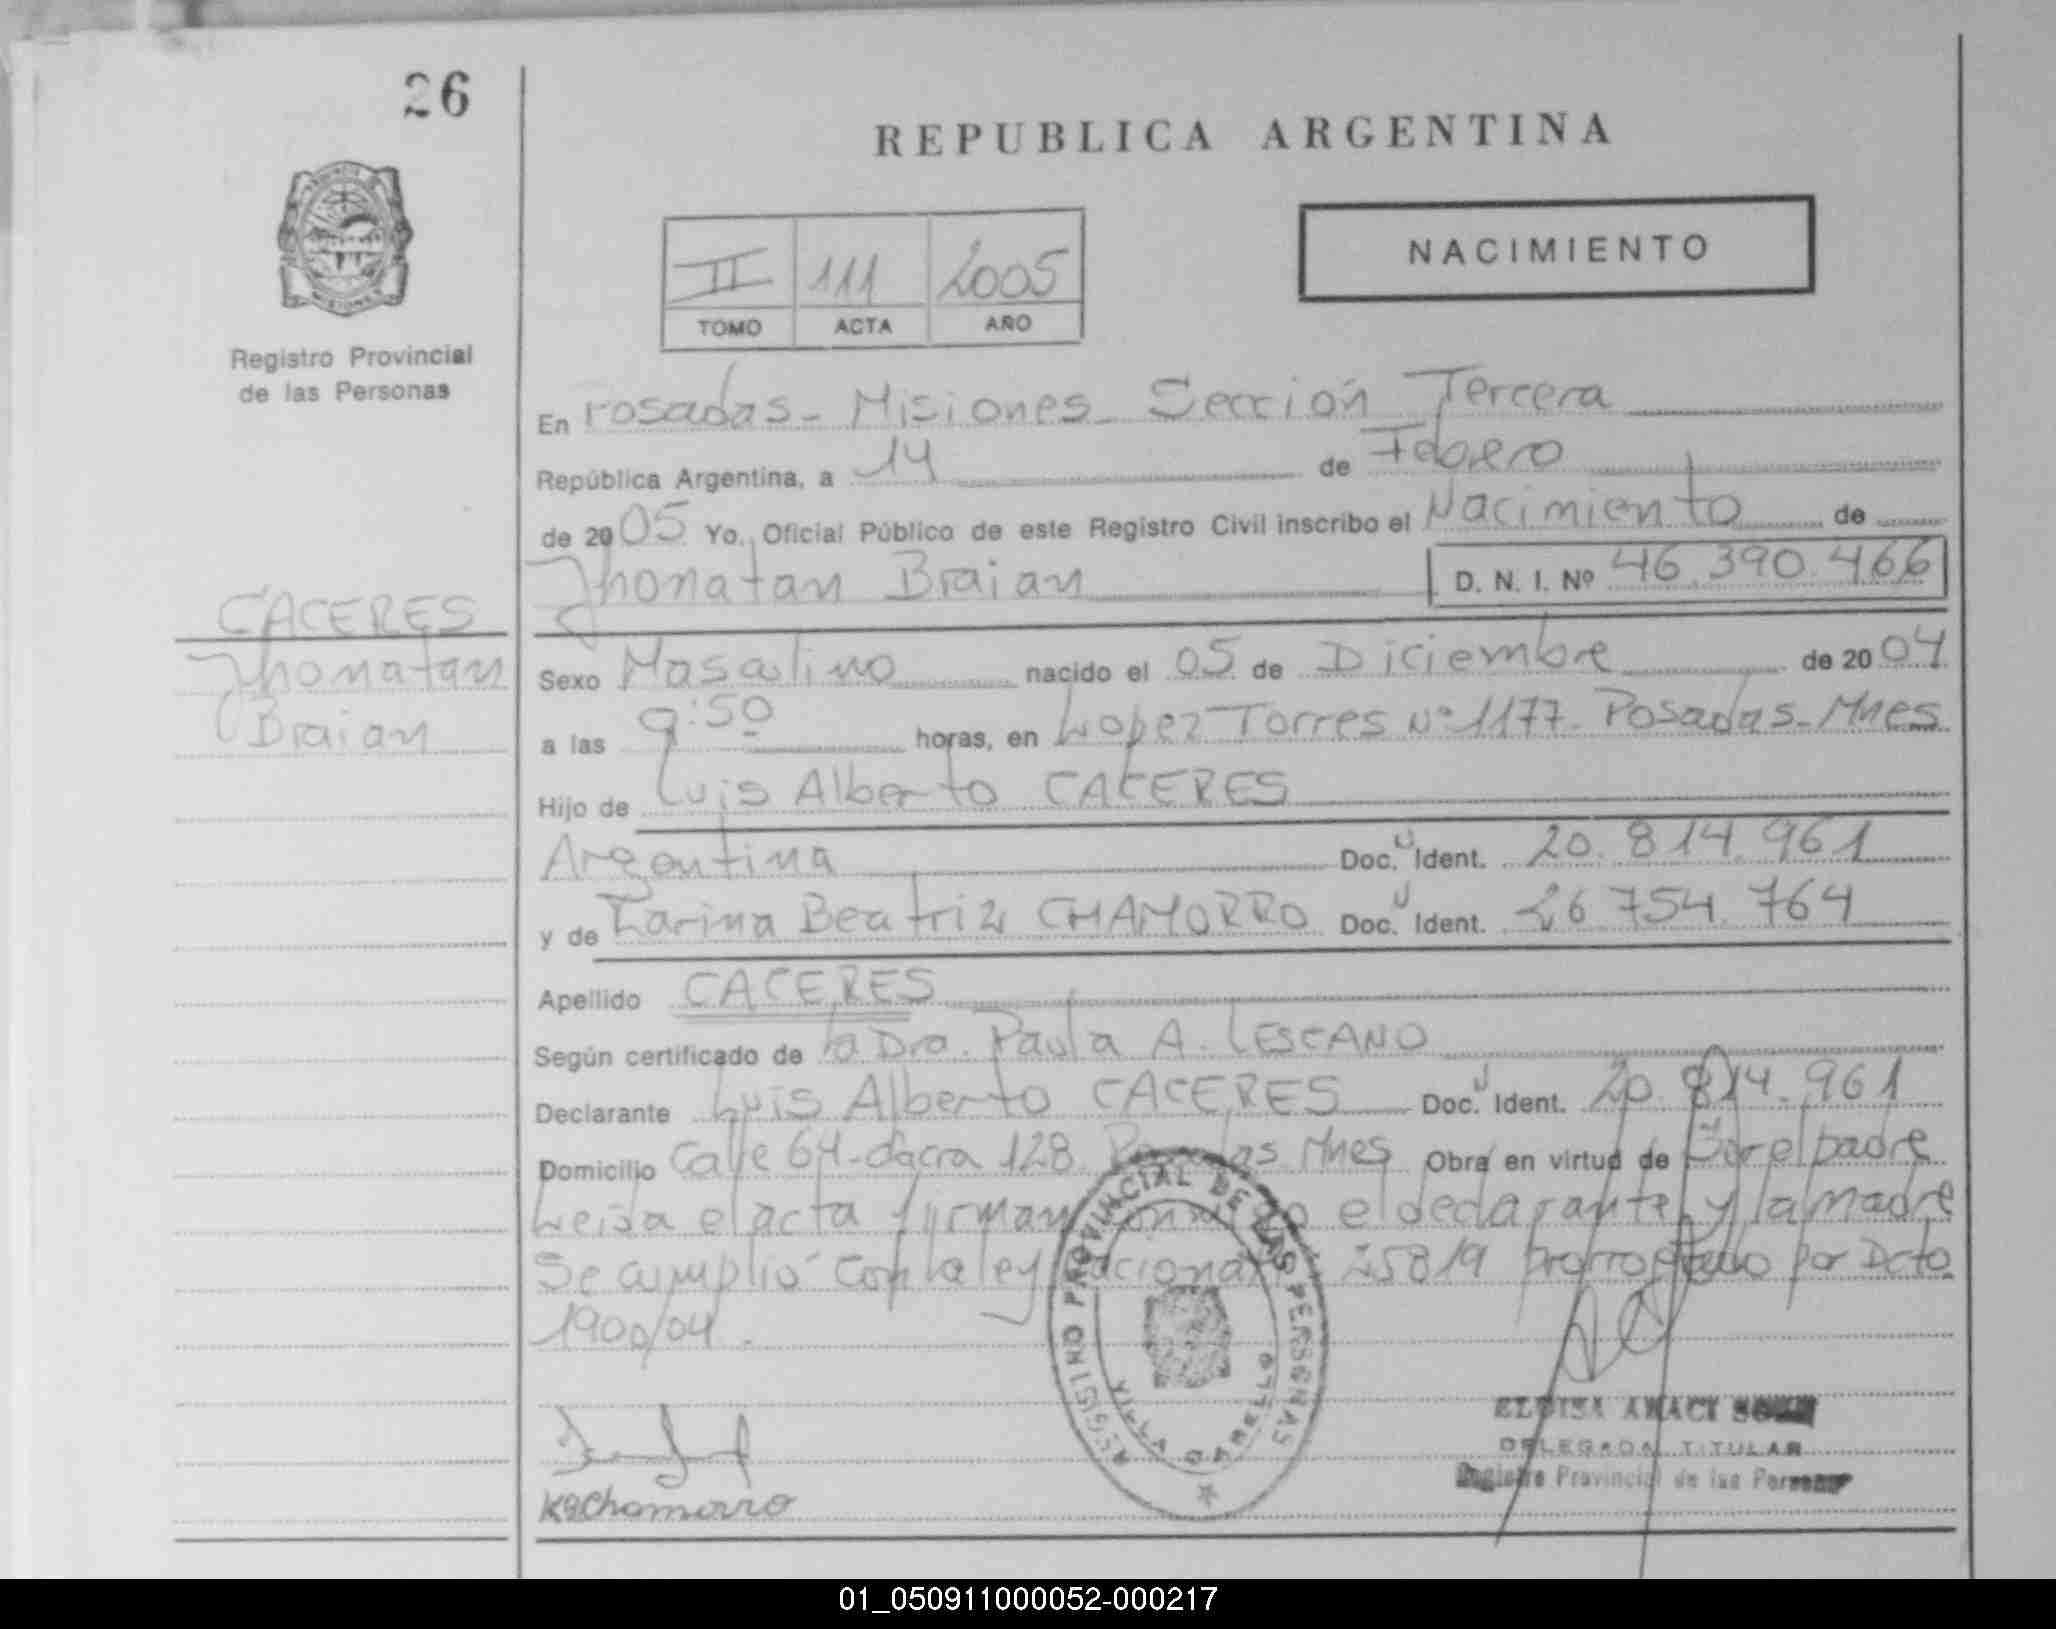 26
REPUBLICA ARGENTINA
NACIMIENTO
II 111 2005
TOMO ACTA AÑO
Registro Provincial
de las Personas
En Posadas - Misiones - Sección Tercera
República Argentina, a 14 de Febrero
de 2005 Yo, Oficial Público de este Registro Civil inscribo el Nacimiento de
Jhonatan Braian D. N. I. Nº 46.390.466
CACERES
Jhonatan
Braian
Sexo Masculino nacido el 05 de Diciembre de 2004
a las 9:50 horas, en Lopez Torres Nº 1177 - Posadas - Mnes
Hijo de Luis Alberto CACERES
Argentina Doc. Ident. 20.814.961
y de Karina Beatriz CHAMORRO Doc. Ident. 26.754.764
Apellido CACERES
Según certificado de la Dra. Paula A. LESCANO
Declarante Luis Alberto CACERES Doc. Ident. 20.814.961
Domicilio Calle 64 - chacra 128 Posadas Mnes Obra en virtud de Ser el padre
Leida el acta firman conmigo el declarante y la madre
Se cumplió con la ley nacional 25819 prorrogado por Dcto
1900/04.
REGISTRO PROVINCIAL DE LAS PERSONAS
VILLA CABELLO
ELOISA
DELEGADA TITULAR
Registro Provincial de las Personas
KBChamorro
01_050911000052-000217